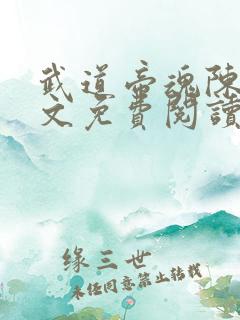 武道帝魂陈
文免費閱讀
缘三世
未经同意禁止转载